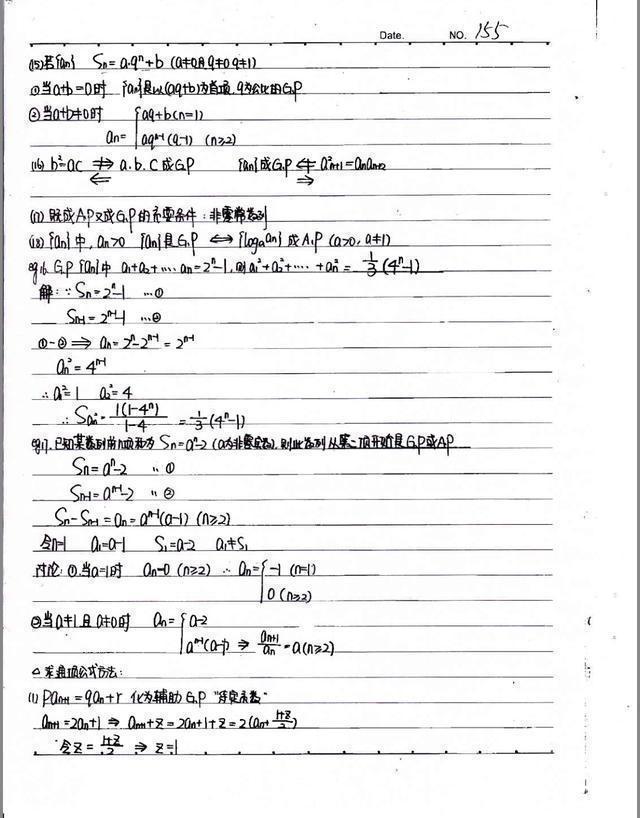 Date. NO. 155
(15)若{an} Sn=a·qⁿ+b (a≠0且q≠0 q≠1)
①当a+b=0时 {an}是以(aq+b)为首项,q为公比的G.P
②当a+b≠0时 an={aq+b(n=1)
aqⁿ⁻¹(q-1) (n≥2)
(16) b²=ac ⇏ a.b.c成G.P {an}成G.P ⇍ a²n+1=an an+2
⇐ ⇒
(17) 既成A.P又成G.P的充要条件:非零常数列
(18) {an}中, an>0 {an}是G.P ⇔ {logₐan}成A.P (a>0, a≠1)
eg16. G.P {an}中 a1+a2+……an=2ⁿ-1, 则a1²+a2²+……+an²= 1/3(4ⁿ-1)
解: ∵Sn=2ⁿ-1 …①
Sn-1=2ⁿ⁻¹-1 …②
①-②⇒ an=2ⁿ-2ⁿ⁻¹=2ⁿ⁻¹
an²=4ⁿ⁻¹
∴a1²=1 a2²=4
∴San²=1(1-4ⁿ)/1-4 =1/3(4ⁿ-1)
eg17. 已知某数列前n项和为Sn=aⁿ-2 (a为非零实数), 则此数列从第二项开始是G.P或A.P
Sn=aⁿ-2 ‥①
Sn-1=aⁿ⁻¹-2 ‥②
Sn-Sn-1=an=aⁿ⁻¹(a-1) (n≥2)
令n=1 a1=a-1 S1=a-2 a1≠S1
讨论:①当a=1时 an=0 (n≥2) ∴ an={-1 (n=1)
0 (n≥2)
②当a≠1且a≠0时 an={a-2
aⁿ⁻¹(a-1) ⇒ an+1/an=a(n≥2)
△求通项公式方法:
(1) Pan+1=qan+r 化为辅助G.P "待定系数"
an+1=2an+1 ⇒ an+1+z=2an+1+z=2(an+1+z/2)
令z=1+z/2 ⇒ z=1